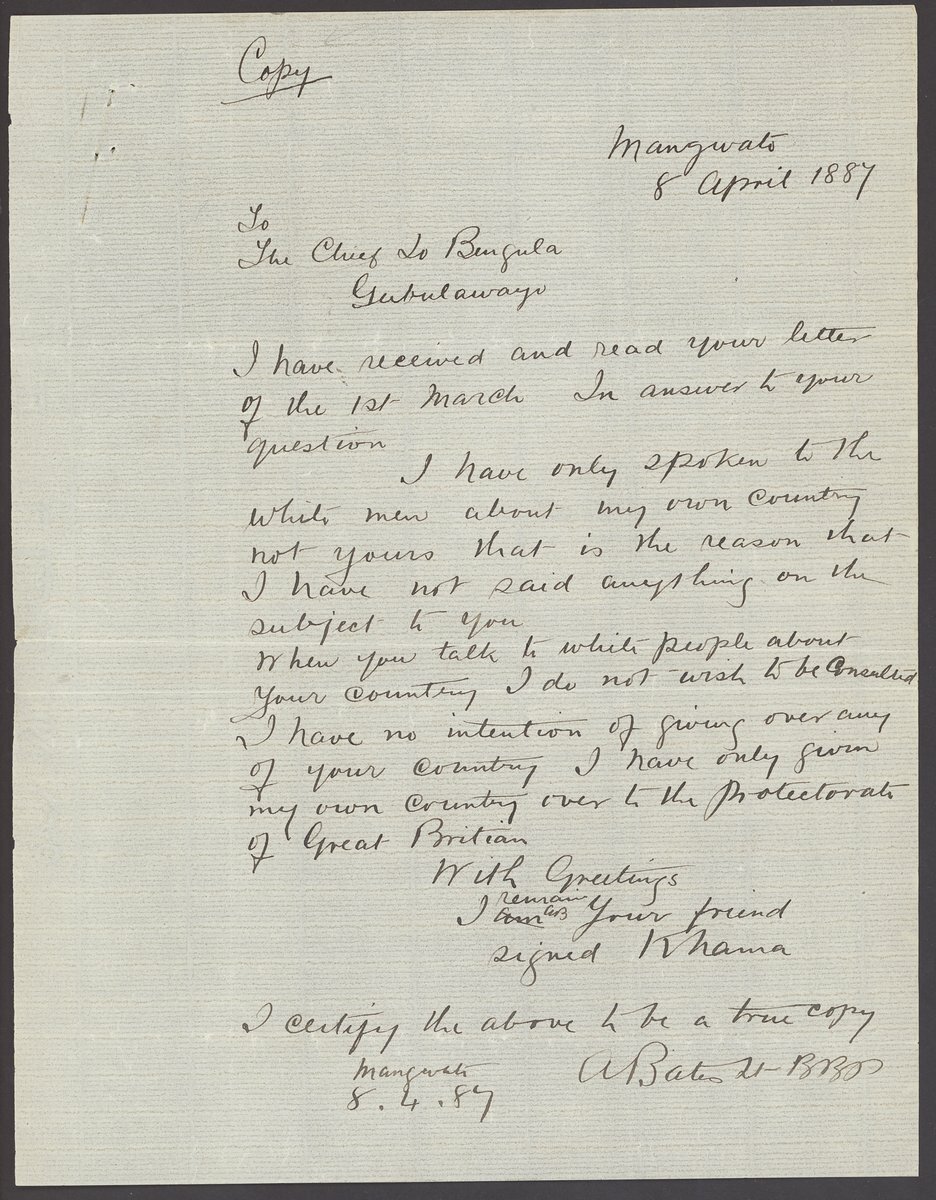 Copy
Mangwato
8 April 1887
To
The Chief Lo Bengula
Gubulawayo
I have received and read your letter
of the 1st March In answer to your
question
I have only spoken to the
white men about my own country
not yours that is the reason that
I have not said anything on the
subject to you
When you talk to white people about
your country I do not wish to be consulted
I have no intention of giving over any
of your country I have only given
my own country over to the Protectorate
of Great Britian
With Greetings
remain
I am AB Your friend
signed Khama
I certify the above to be a true copy
Mangwato
8.4.87
A Bates Lt BBP